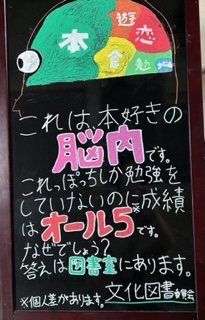 本
遊
恋
食
勉
これは、本好きの
脳内です。
これっぽっちしか勉強を
していないのに成績
はオール5※です。
なぜでしょう？
答えは図書室にあります。
※個人差があります。文化図書委員会